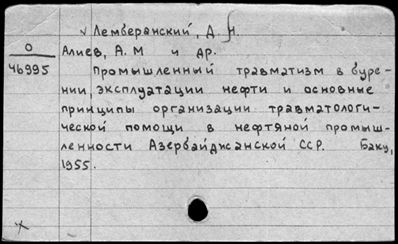 √ Лемберанский, Д Н.
О
46995
Алиев, А. М и др.
Промышленный травматизм в буре-
нии, эксплуатации нефти и основные
принципы организации травматологи-
ческой помощи в нефтяной промыш-
ленности Азербайджанской ССР. Баку,
1955.